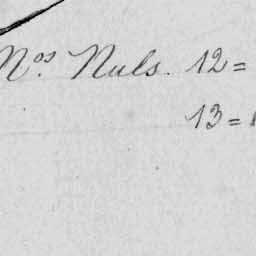 Nos. Nuls. 12 =
13 =